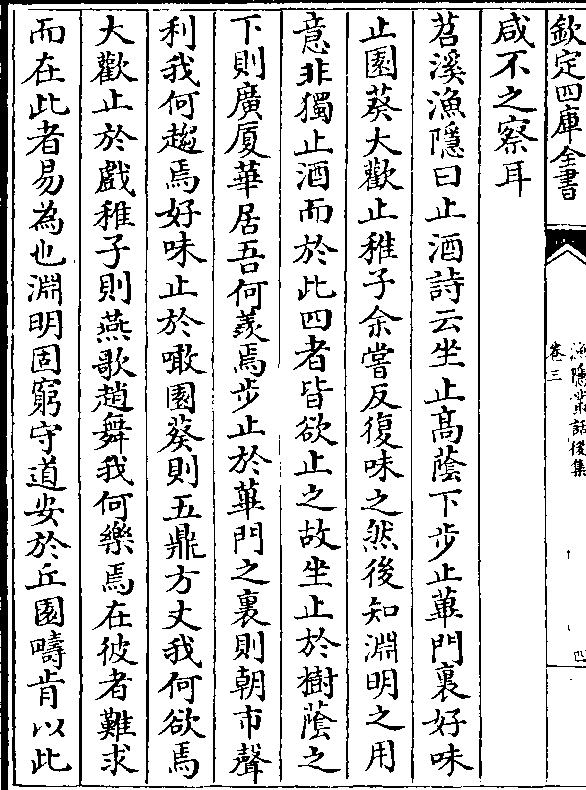 欽定四庫全書
漁隱叢話後集
卷三
四
咸不之察耳
苕溪漁隱曰止酒詩云坐止髙蔭下步止蓽門裏好味
止園葵大歡止稚子余嘗反復味之然後知淵明之用
意非獨止酒而於此四者皆欲止之故坐止於樹蔭之
下則廣厦華居吾何羡焉步止於蓽門之裏則朝市聲
利我何趨焉好味止於噉園葵則五鼎方丈我何欲焉
大歡止於戲稚子則燕歌趙舞我何樂焉在彼者難求
而在此者易為也淵明固窮守道安於丘園疇肯以此